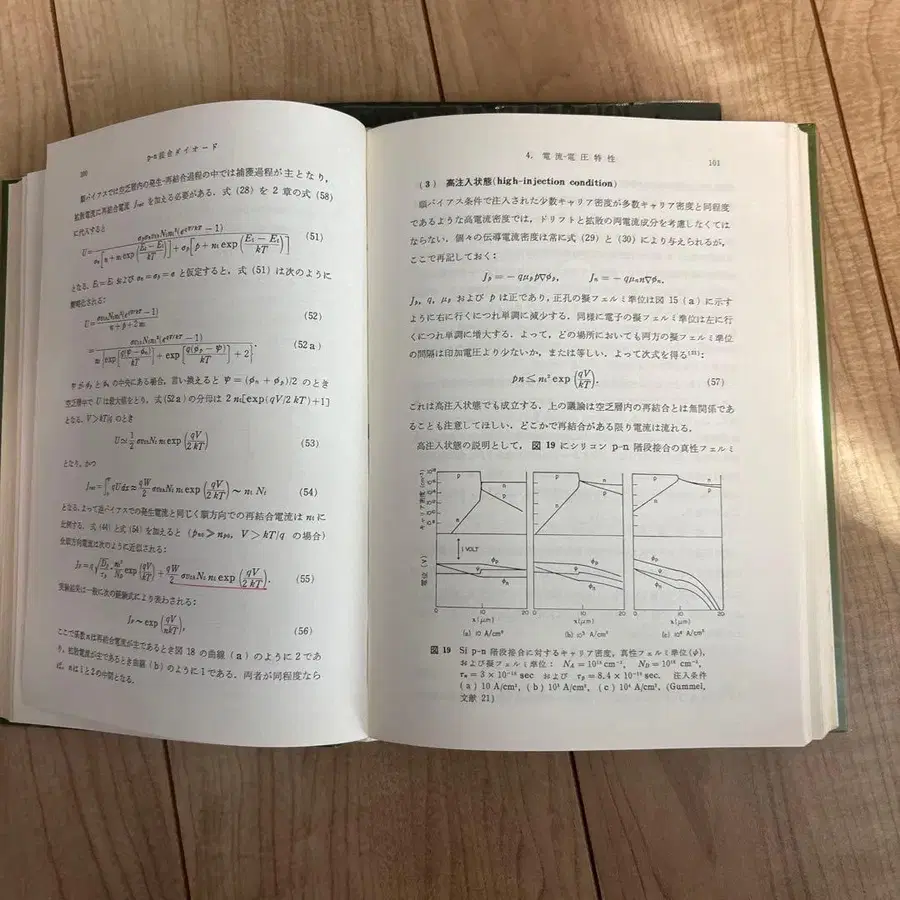 p-n接合ダイオード
順バイアスでは空乏層内の発生-再結合過程の中では捕獲過程が主となり,
拡散電流に再結合電流 Jrec を加える必要がある. 式 (28) を 2 章の式 (58)
に代入すると
(51)
となる. Et=Ei および σn=σp=σ と仮定すると, 式 (51) は次のように
簡略化される:
(52)
(52a)
Ψ が φp と φn の中央にある場合, 言い換えると Ψ=(φn+φp)/2 のとき
空乏層中で U は最大値をとり, 式(52a) の分母は 2ni[exp(qV/2kT)+1]
となる. V>kT/q のとき
U≃1/2 σvthNt ni exp(qV/2kT) (53)
となり, かつ
Jrec=∫qUdx≈qW/2 σvthNt ni exp(qV/2kT)~ni Nt (54)
となる. よって逆バイアスでの発生電流と同じく順方向での再結合電流は ni に
比例する. 式 (44) と式 (54) を加えると (pn0≫np0, V>kT/q の場合)
全順方向電流は次のように近似される:
JF=q√(Dp/τp) ni²/ND exp(qV/kT)+qW/2 σvthNt ni exp(qV/2kT). (55)
実験結果は一般に次の経験式により表わされる:
JF~exp(qV/nkT), (56)
ここで係数 n は再結合電流が主であるとき図 18 の曲線 (a) のように 2 であ
り, 拡散電流が主であるとき曲線 (b) のように 1 である. 両者が同程度なら
ば, n は 1 と 2 の中間となる.
4. 電流-電圧特性 101
(3) 高注入状態(high-injection condition)
順バイアス条件で注入された少数キャリア密度が多数キャリア密度と同程度
であるような高電流密度では, ドリフトと拡散の両電流成分を考慮しなくては
ならない. 個々の伝導電流密度は常に式 (29) と (30) により与えられるが,
ここで再記しておく:
Jp=−qμpp∇φp, Jn=−qμnn∇φn.
Jp, q, μp および p は正であり, 正孔の擬フェルミ準位は図 15 (a) に示す
ように右に行くにつれ単調に減少する. 同様に電子の擬フェルミ準位は左に行
くにつれ単調に増大する. よって, どの場所においても両方の擬フェルミ準位
の間隔は印加電圧より少ないか, または等しい. よって次式を得る(21):
pn≤ni²exp(qV/kT). (57)
これは高注入状態でも成立する. 上の議論は空乏層内の再結合とは無関係であ
ることも注意してほしい. どこかで再結合がある限り電流は流れる.
高注入状態の説明として, 図 19 にシリコン p-n 階段接合の真性フェルミ
キャリア密度 (cm⁻³)
p n p n
p n p n
p n
電位 (V)
1 VOLT
φp Ψ φn
φp Ψ φn
φp Ψ φn
0 10 20 0 10 20 0 10 20
x(μm) x(μm) x(μm)
(a) 10 A/cm² (b) 10³ A/cm² (c) 10⁴ A/cm²
図 19 Si p-n 階段接合に対するキャリア密度, 真性フェルミ準位(Ψ),
および擬フェルミ準位: NA=10¹⁸ cm⁻³, ND=10¹⁶ cm⁻³,
τn=3×10⁻¹⁰ sec および τp=8.4×10⁻¹⁰ sec. 注入条件
(a) 10 A/cm², (b) 10³ A/cm², (c) 10⁴ A/cm². (Gummel,
文献 21)